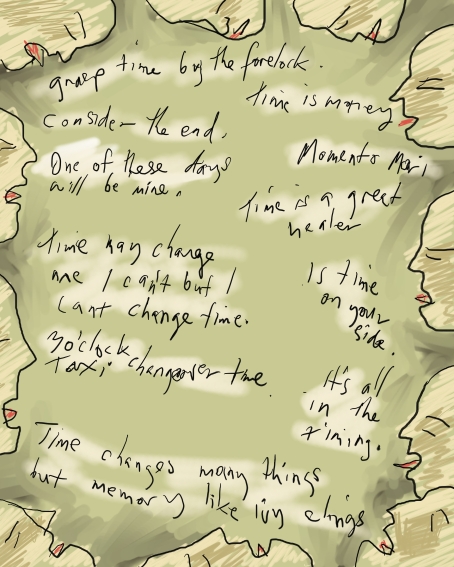 grasp time by the forelock.
time is money
consider the end.
One of these days
will be mine.
Momento Mori
time is a great
healer
time may change
me I can't but I
cant change time.
Is time
on your
side.
3o'clock
Taxi changeover time
It's all
in the
timing.
Time changes many things
but memory like ivy clings